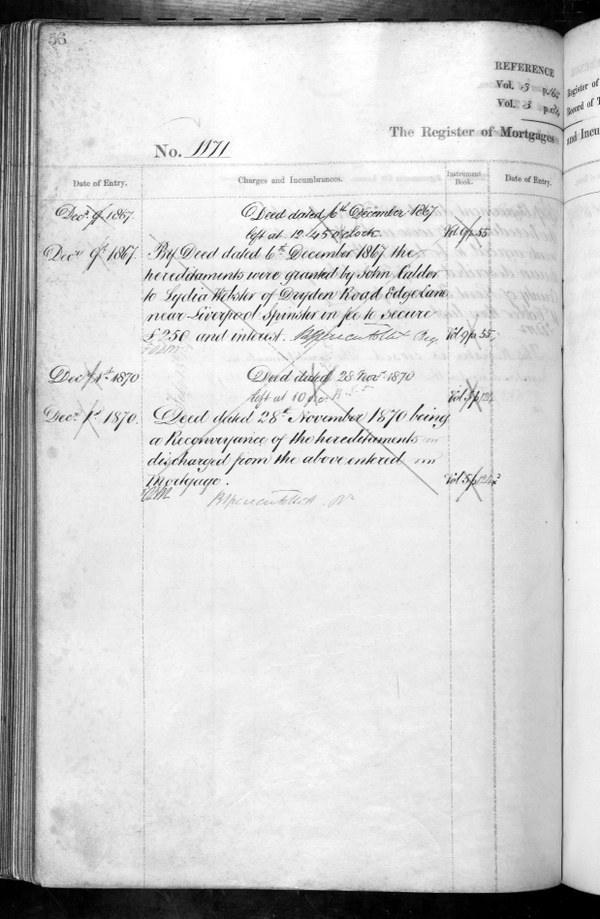 56
REFERENCE
Vol. 5 p.
Vol. 3 p.
The Register of Mortgages
No. 1171
Date of Entry. Charges and Incumbrances. Instrument Book. Date of Entry.
Decr 9th 1867. Deed dated 6th December 1867
left at 12.45 o'clock. Vol 9 p. 55
Decr 9th 1867. By Deed dated 6th December 1867 the
hereditaments were granted by John Calder
to Lydia Webster of Dryden Road Edge Lane
near Liverpool Spinster in fee to secure
£250 and interest. Reg Vol 9 p. 55
Decr 1st 1870 Deed dated 28 Novr 1870
left at 10 Vol 5 p
Decr 1st 1870. Deed dated 28th November 1870 being
a Reconveyance of the hereditaments
discharged from the above entered
Mortgage. Vol 5 p
Register of
Record of T
and Incu